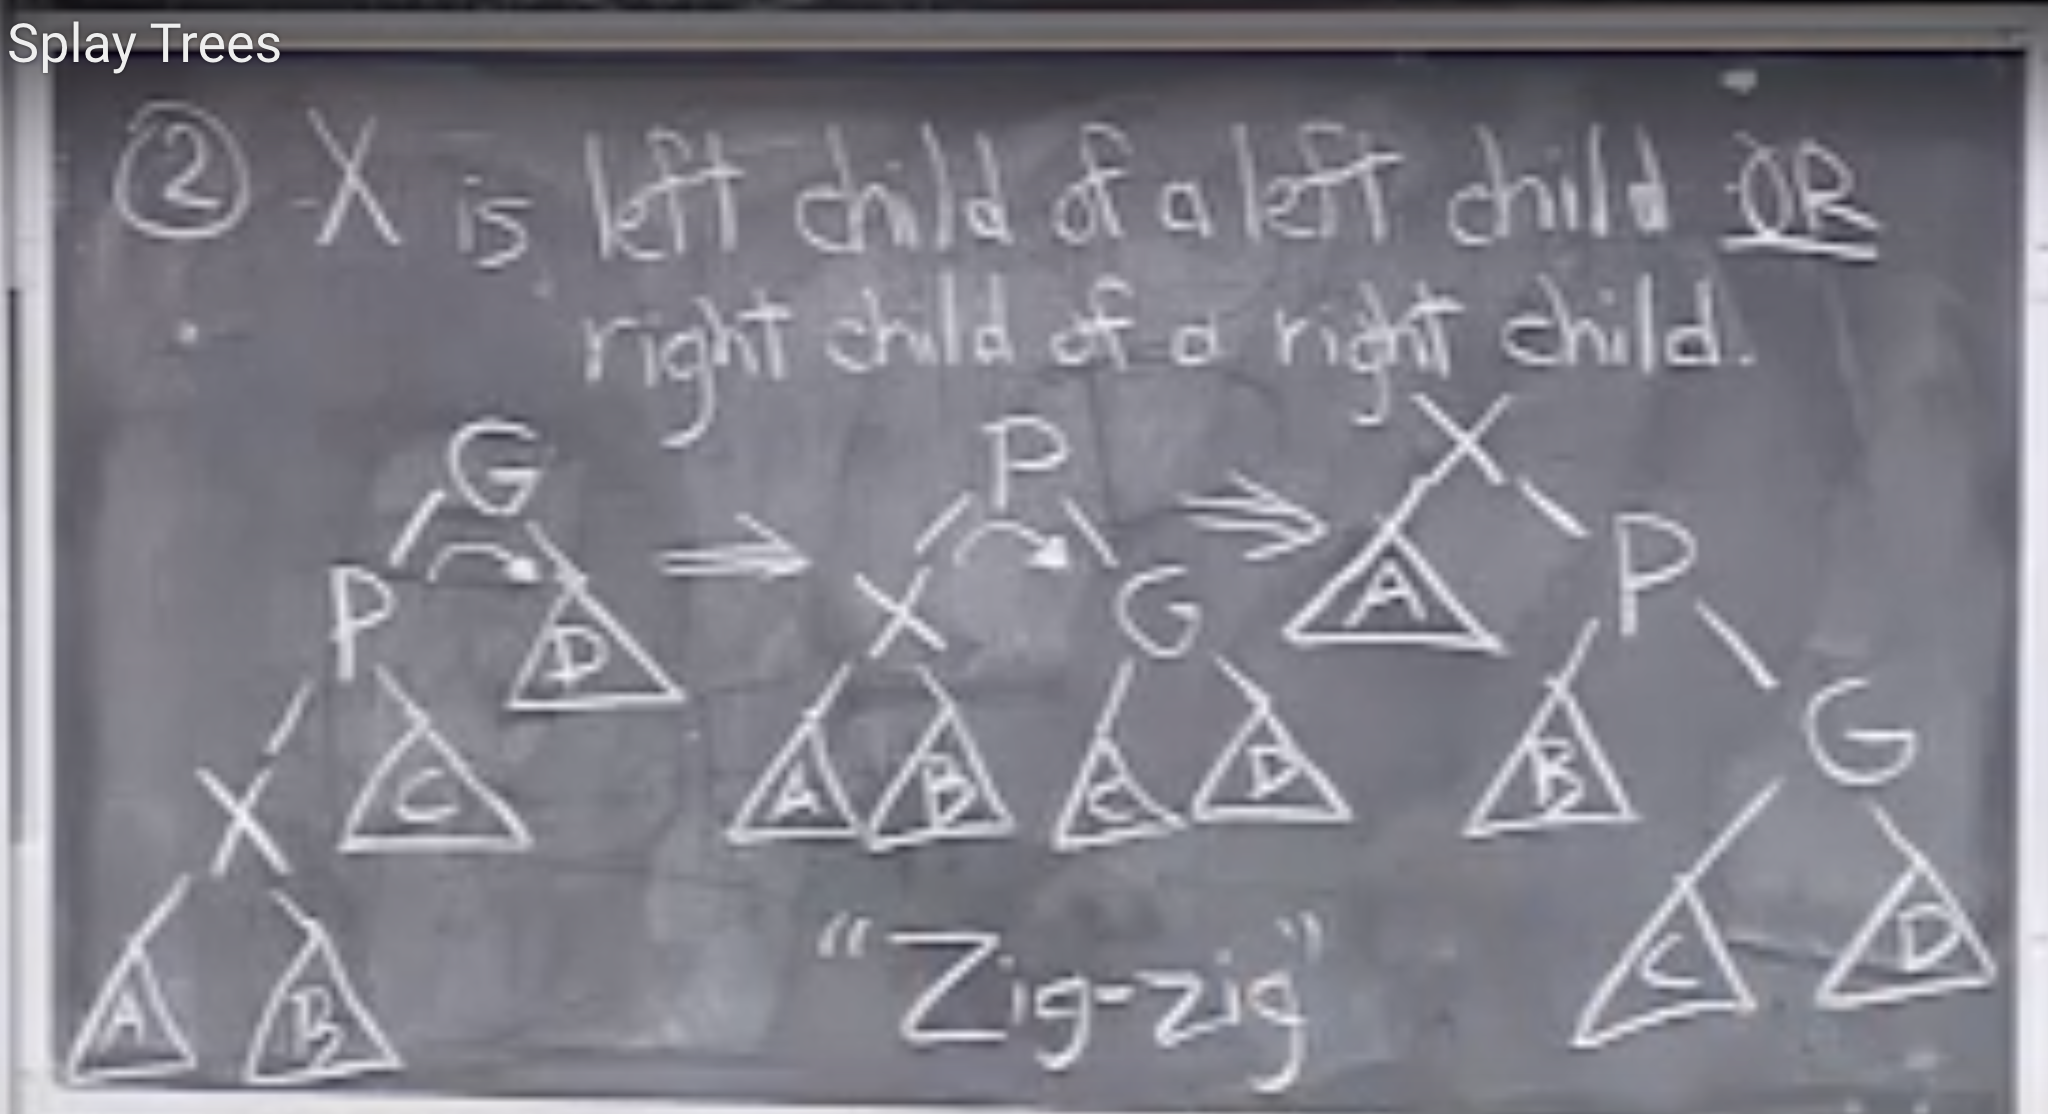 Splay Trees
② X is left child of a left child OR
right child of a right child.
G
P
D
X
C
A
B
P
X
G
A
B
C
D
X
A
P
B
G
C
D
"Zig-zig"